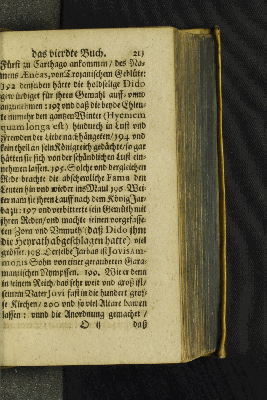 das vierdte Buch. 213
Fürst zu Carthago ankommen / des Na-
mens Æneas, von Trojanischem Geblüte:
192 denselben hätte die holdselige Dido
gewürdiget für ihren Gemahl auff- und
anzunehmen: 193 und daß die beyde Ehleu-
te nunmehr den gantzen Winter (Hyemem
quam longa est) hindurch in Lust und
der Liebe nachhängeten / 194 und
kein theil an sein Königreich gedächte / so gar
hätten sie sich von der schändlichen Lust ein-
nehmen lassen. 195. Solche und dergleichen
Rede brachte die abscheuliche Fama den
Leuten hin und wieder ins Maul 196. Wei-
ter nam sie ihren Lauff nach dem König Jar-
ba zu: 197 und verbitterte sein Gemüth mit
ihren Reden / und machte seinen vorgefaste-
ten Zorn und Unmuth (daß Dido ihm
die Heyrath abgeschlagen hatte) viel
grösser. 198. Derselbe Jarbas ist Jovis Am-
monis Sohn von einer geraubeten Gara-
mantischen Nymphen. 199. Dieser
in seinem Reich / das sehr weit und groß ist /
seinem Vater Jovi fast in die hundert gros-
se Kirchen / 200 und so viel Altare bawen
lassen: vund die Anordnung gemachet /
O ij daß